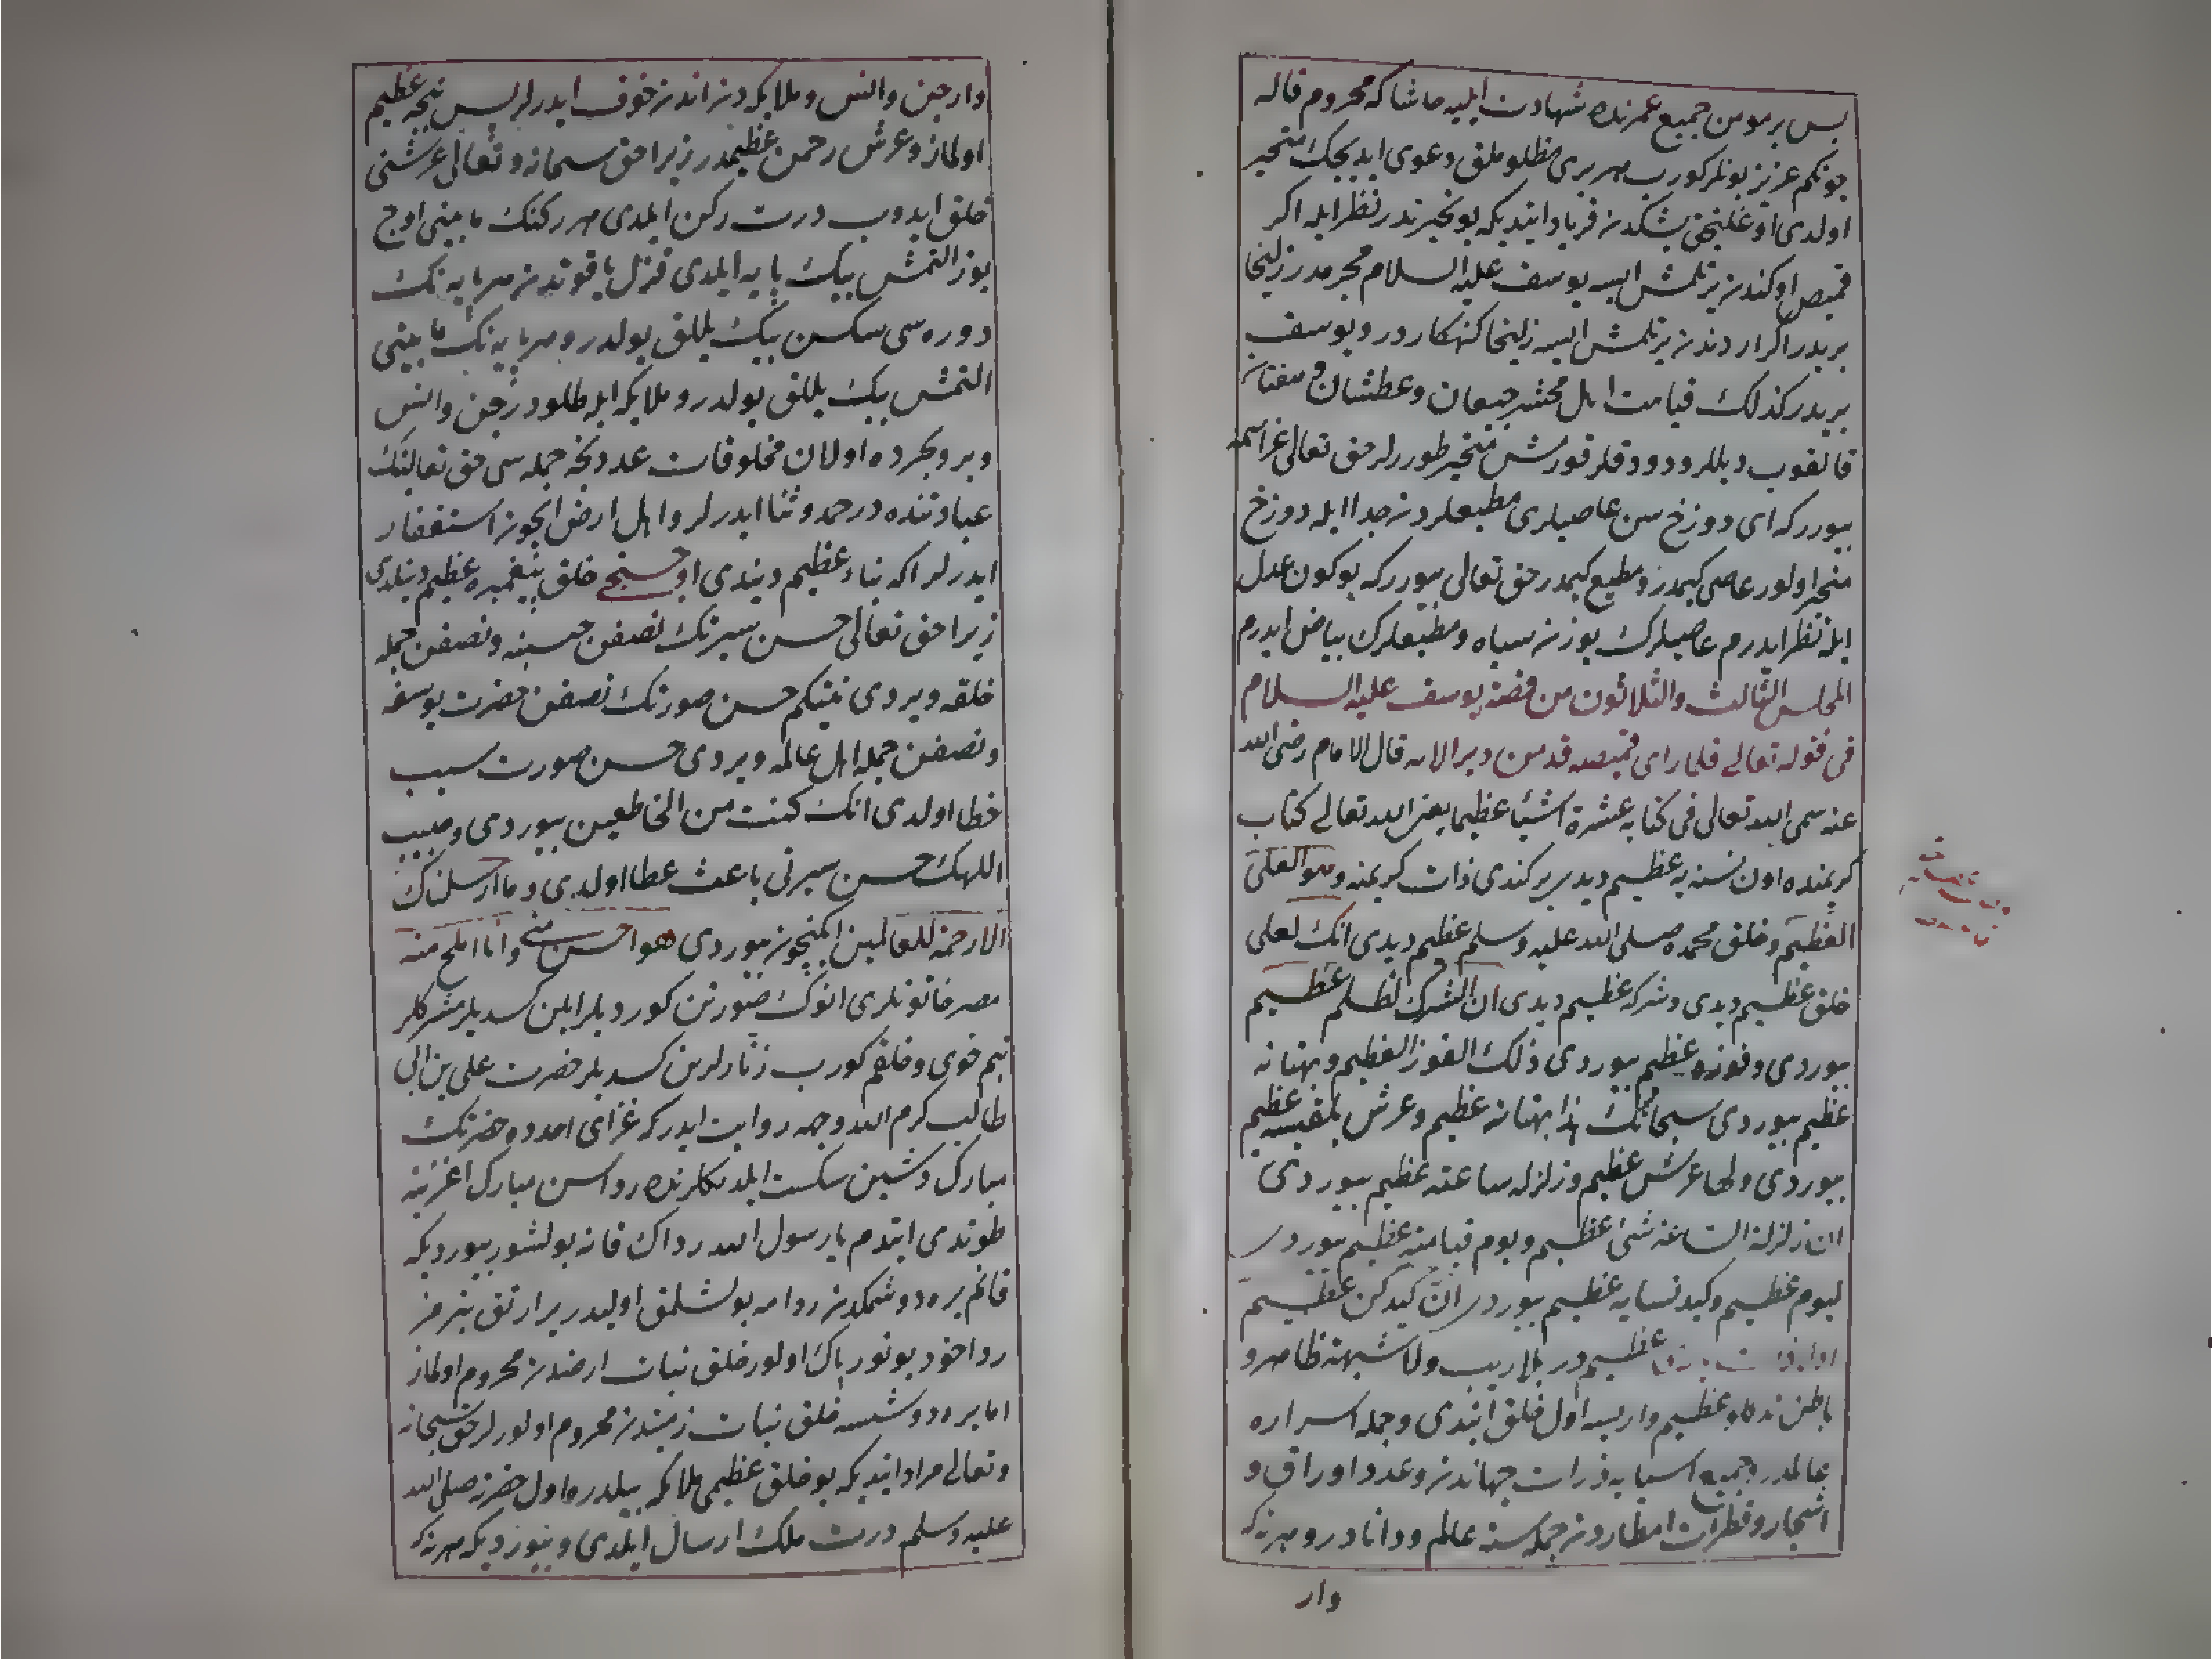 پس بر مومن جمیع عمرنده شهادت ایلیه حاشا که محروم قاله
چونکم عزیز بونلر کورب هر بری مظلوملق دعوی ایدیجک متحیر
اولدی اوغلنجق بشکدن فریاد ایتدیکه بو تحیر ندر نظر ایله اکر
قمیص اوکندن یرتلمش ایسه یوسف علیه السلام مجرمدر زلیخا
بریدر اکر اردندن یرتلمش ایسه زلیخا کنهکاردر و یوسف
بریدر کذلک قیامت اهل محشر جیعان و عطشان
قالقوب دیللر و دوداقلر قورمش متحیر طوررلر حق تعالی عز اسمه
بیوررکه ای دوزخ سن عاصیلری مطیعلردن جدا ایله دوزخ
متحیر اولور عاصی کیمدر و مطیع کیمدر حق تعالی بیوررکه بو کون عدل
ایله نظر ایدرم عاصیلرک یوزن سیاه و مطیعلرک بیاض ایدرم
المجلس الثالث والثلاثون من قصة یوسف علیه السلام
فی قوله تعالی فلما رای قمیصه قد من دبر الایه قال الامام رضی الله
عنه سمی الله تعالی فی کتابه عشرة اشیاء عظیما یعنی الله تعالی کتاب
کریمنده اون نسنه یه عظیم دیدی بر کندی ذات کریمنه وهو العلی
العظیم و خلق محمده صلی الله علیه وسلم عظیم دیدی انک لعلی
خلق عظیم دیدی و شرکه عظیم دیدی ان الشرک لظلم عظیم
بیوردی و فوزه عظیم بیوردی ذلک الفوز العظیم و بهتانه
عظیم بیوردی سبحانک هذا بهتان عظیم و عرش بلقیسه عظیم
بیوردی ولها عرش عظیم و زلزله ساعته عظیم بیوردی
ان زلزلة الساعة شئ عظیم و یوم قیامته عظیم بیوردی
لیوم عظیم و کید نسایه عظیم بیوردی ان کیدکن عظیم
عظیمدر بلاریب ولا شبهة ظاهر و
باطن نه دکلو عظیم وار ایسه اول خلق ایتدی و جمله اسراره
عالمدر و جمیع اشیایه ذرات جهاندن و عدد اوراق و
اشجار و قطرات امطاردن جمله سنه عالم و دانادر و هر نه که
وار
وار جن و انس و ملایکه دن اندن خوف ایدرلر پس نیجه عظیم
اولماز و عرش رحمن عظیمدر زیرا حق سبحانه و تعالی عرشنی
خلق ایدوب درت رکن ایلدی هر رکنک مابینی اوچ
یوز التمش بیک پایه ایلدی قزل یاقوتدن هر پایه نک
دوره سی سکسن بیک ییللق یولدر و هر پایه نک مابینی
التمش بیک ییللق یولدر و ملایکه ایله طلودر جن و انس
و بر و بحرده اولان مخلوقات عددنجه جمله سی حق تعالینک
عبادتنده در حمد و ثنا ایدرلر و اهل ارض ایچون استغفار
ایدرلر اکه نباء عظیم دیندی اوچنجی خلق پیغمبره عظیم دینلدی
زیرا حق تعالی حسن سیرتک نصفن حبیبنه و نصفن جمله
خلقه ویردی نیتکم حسن صورتک نصفن حضرت یوسفه
و نصفن جمله اهل عالمه ویردی حسن صورت سبب
خطا اولدی انک کنت من الخاطئین بیوردی و حبیب
اللهک حسن سیرتی باعث عطا اولدی وما ارسلناک
الا رحمة للعالمین انکیچون بیوردی هو احسن منی وانا املح منه
مصر خاتونلری انوک صورتن کوردیلر الن کسدیلر مشرکلر
بنم خوی و خلقم کورب زنارلرین کسدیلر حضرت علی بن ابی
طالب کرم الله وجهه روایت ایدرکه غزای احدده حضرتک
مبارک دشین سکست ایلدکلرنده رداسن مبارک اغزینه
طوتدی ایتدم یا رسول الله رداک قانه بولشور بیوردیکه
قانم یره دوشمکدن ردامه بولشملق اولیدر یر ارتق بتمز
ردا خود یونور پاک اولور خلق نبات ارضدن محروم اولماز
اما یره دوشسه خلق نبات زمیندن محروم اولورلر حق سبحانه
و تعالی مراد ایتدیکه بو خلق عظیمی ملایکه بیلدره اول حضرته صلی الله
علیه وسلم درت ملک ارسال ایلدی و بیوردیکه هر نه که